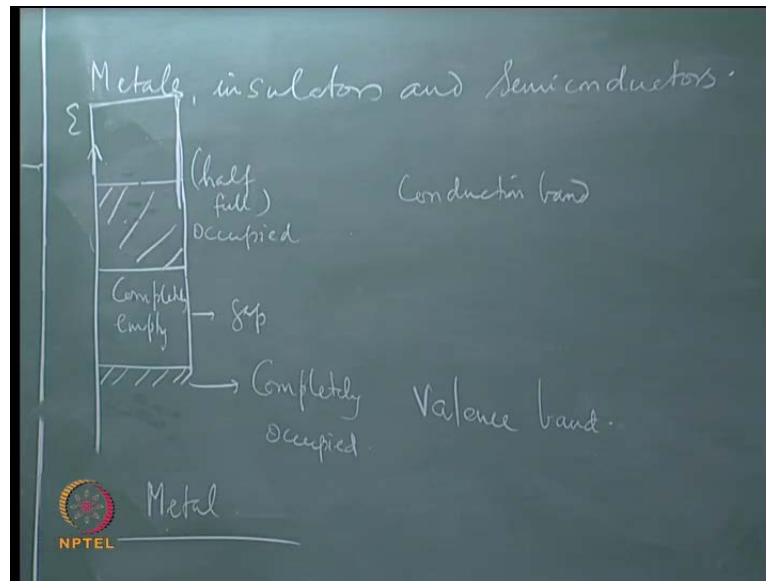 Metals, insulators and Semiconductors.
ε
(half
full)
occupied
Conduction band
Completely
empty
→ gap
→ Completely
occupied.
Valence band.
Metal
NPTEL